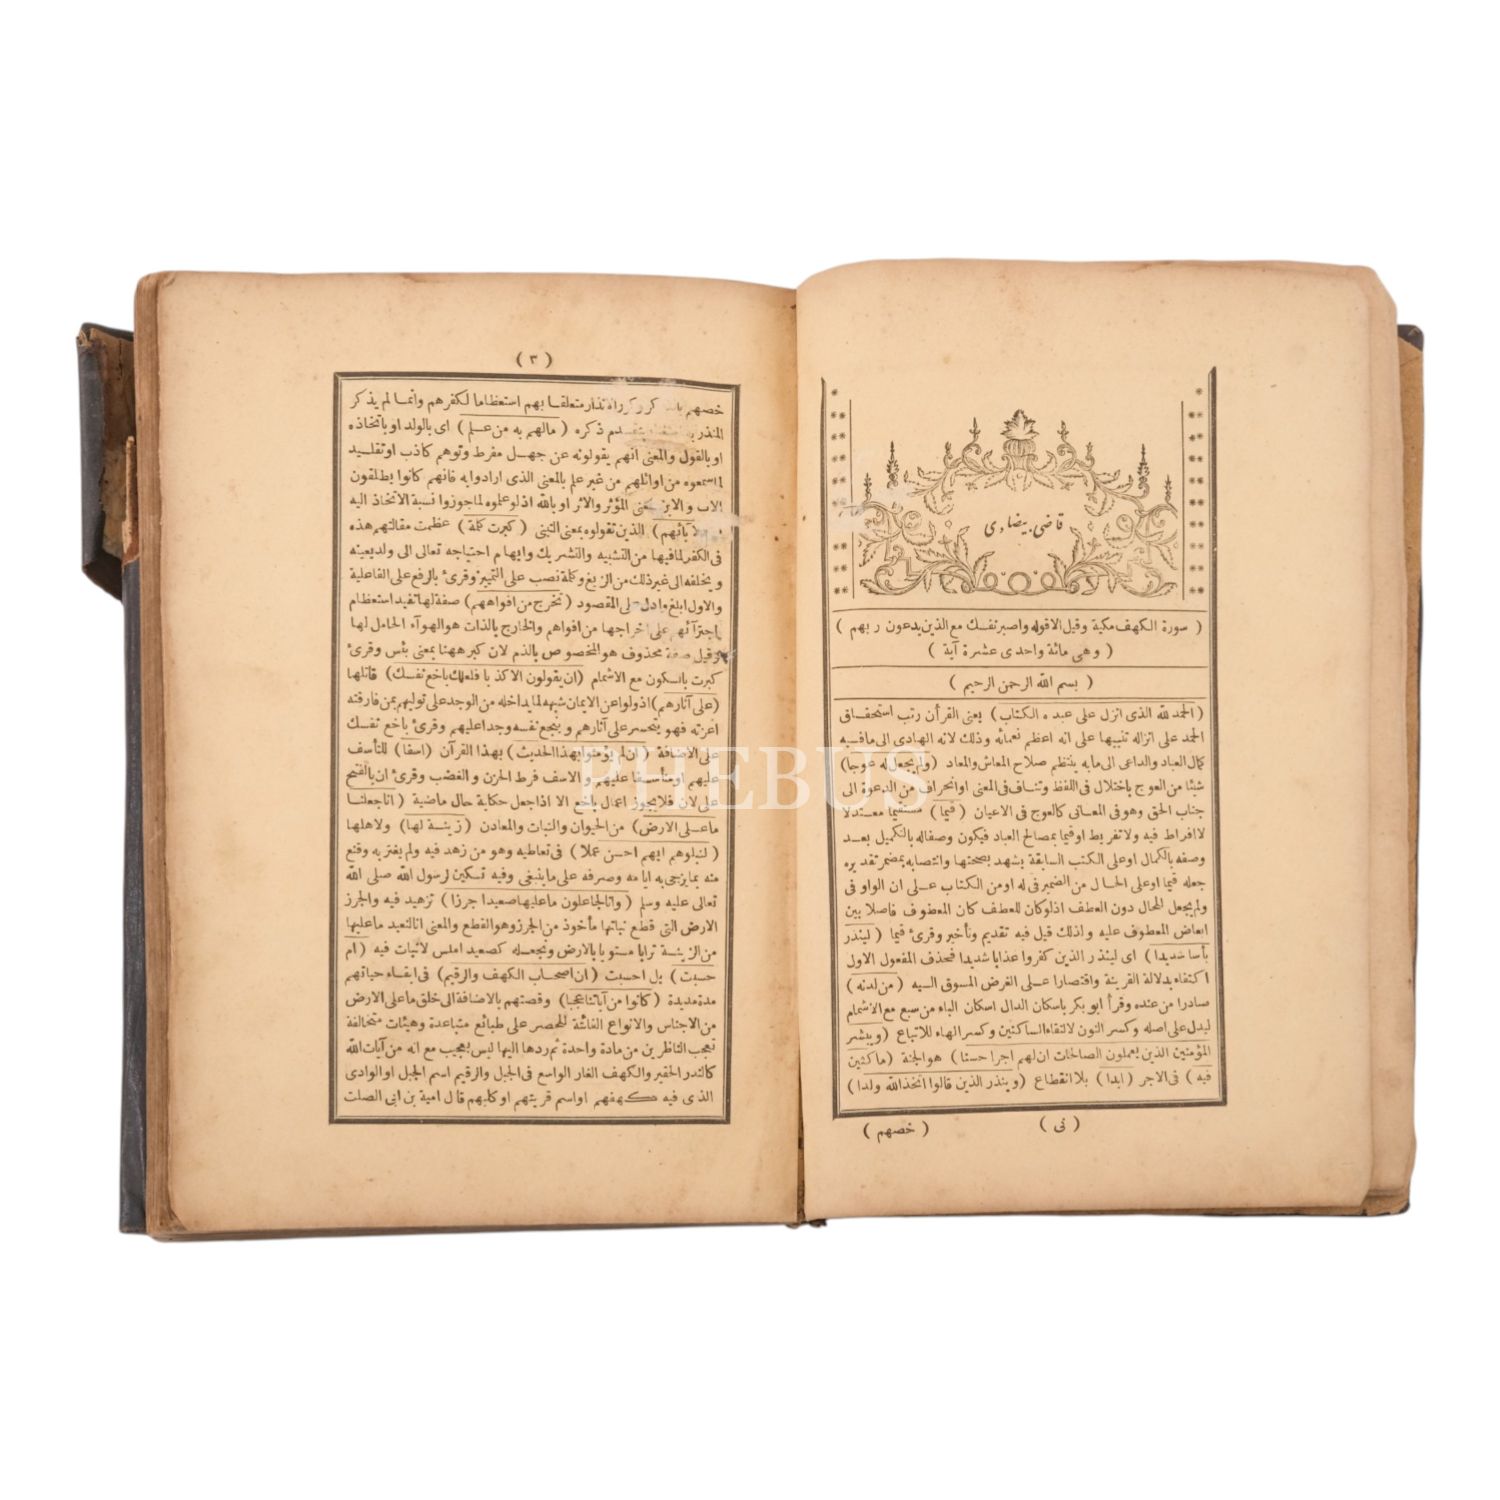 قاضی بیضاوی
( سورة الكهف مكية وقيل الاقوله واصبر نفسك مع الذين يدعون ربهم )
( وهى مائة واحدى عشرة آية )
( بسم الله الرحمن الرحيم )
( الحمد لله الذى انزل على عبده الكتاب ) يعنى القرأن رتب استحقاق
الحمد على انزاله تنبيها على انه اعظم نعمائه وذلك لانه الهادى الى مافيه
كمال العباد والداعى الى مابه ينتظم صلاح المعاش والمعاد ( ولم يجعل له عوجا )
شيئا من العوج باختلال فى اللفظ وتناف فى المعنى او انحراف من الدعوة الى
جناب الحق وهو فى المعانى كالعوج فى الاعيان ( قيما ) مستقيما معتدلا
لاافراط فيه ولاتفريط اوقيما بمصالح العباد فيكون وصفاله بالتكميل بعد
وصفه بالكمال اوعلى الكتب السابقة يشهد بصحتها وانتصابه بمضمر تقديره
جعله قيما اوعلى الحال من الضمير فى له اومن الكتاب على ان الواو فى
ولم يجعل للحال دون العطف اذلوكان للعطف كان المعطوف فاصلا بين
ابعاض المعطوف عليه ولذلك قيل فيه تقديم وتأخير وقرئ قيما ( لينذر
بأسا شديدا ) اى لينذر الذين كفروا عذابا شديدا فحذف المفعول الاول
اكتفاء بدلالة القرينة واقتصارا على الغرض المسوق اليه ( من لدنه )
صادرا من عنده وقرأ ابو بكر باسكان الدال اسكان الباء من سبع مع الاشمام
ليدل على اصله وكسر النون لالتقاء الساكنين وكسر الهاء للاتباع ( ويبشر
المؤمنين الذين يعملون الصالحات ان لهم اجرا حسنا ) هو الجنة ( ماكثين
فيه ) فى الاجر ( ابدا ) بلا انقطاع ( وينذر الذين قالوا اتخذ الله ولدا )
( نى ) ( خصهم )
( ٣ )
خصهم بالذكر وكرر الانذار متعلقا بهم استعظاما لكفرهم وانما لم يذكر
المنذر به استغناء بتقدم ذكره ( مالهم به من علم ) اى بالولد او باتخاذه
او بالقول والمعنى انهم يقولونه عن جهل مفرط وتوهم كاذب اوتقليد
لما سمعوه من اوائلهم من غير علم بالمعنى الذى ارادوابه فانهم كانوا يطلقون
الاب والابن بمعنى المؤثر والاثر او بالله اذلو علموه لماجوزوا نسبة الاتخاذ اليه
( ولا لآبائهم ) الذين تقولوه بمعنى التبنى ( كبرت كلمة ) عظمت مقالتهم هذه
فى الكفر لمافيها من التشبيه والتشريك وايهام احتياجه تعالى الى ولد يعينه
ويخلفه الى غير ذلك من الزيغ وكلمة نصب على التمييز وقرئ بالرفع على الفاعلية
والاول ابلغ وادل على المقصود ( تخرج من افواههم ) صفة لها تفيد استعظام
اجترآئهم على اخراجها من افواهم والخارج بالذات هو الهوآء الحامل لها
وقيل صفة محذوف هو المخصوص بالذم لان كبر ههنا بمعنى بئس وقرئ
كبرت بالسكون مع الاشمام ( ان يقولون الا كذبا فلعلك باخع نفسك ) قاتلها
( على آثارهم ) اذولوا عن الايمان شبهه لما يداخله من الوجد على توليهم بمن فارقته
اعزته فهو يتحسر على آثارهم ويبخع نفسه وجدا عليهم وقرئ باخع نفسك
على الاضافة ( ان لم يؤمنوا بهذا الحديث ) بهذا القرآن ( اسفا ) للتأسف
عليهم اومتأسفا عليهم والاسف فرط الحزن والغضب وقرئ ان بالفتح
على لان فلا يجوز اعمال باخع الا اذا جعل حكاية حال ماضية ( انا جعلنا
ما على الارض ) من الحيوان والنبات والمعادن ( زينة لها ) ولاهلها
( لنبلوهم ايهم احسن عملا ) فى تعاطيه وهو من زهد فيه ولم يغتر به وقنع
منه بما يزجى به ايامه وصرفه على ماينبغى وفيه تسكين لرسول الله صلى الله
تعالى عليه وسلم ( وانا لجاعلون ماعليها صعيدا جرزا ) تزهيد فيه والجرز
الارض التى قطع نباتها مأخوذ من الجرز وهو القطع والمعنى انالنعيد ماعليها
من الزينة ترابا مستويا بالارض ونجعله كصعيد املس لانبات فيه ( ام
حسبت ) بل احسبت ( ان اصحاب الكهف والرقيم ) فى ابقاء حياتهم
مدة مديدة ( كانوا من آياتنا عجبا ) وقصتهم بالاضافة الى خلق ماعلى الارض
من الاجناس والانواع الفائتة للحصر على طبائع متباعدة وهيئات متخالفة
تعجب الناظرين من مادة واحدة ثم ردها اليها ليس بعجيب مع انه من آيات الله
كالنذر الحقير والكهف الغار الواسع فى الجبل والرقيم اسم الجبل او الوادى
الذى فيه كهفهم او اسم قريتهم او كلبهم قال امية بن ابى الصلت
PHEBUS